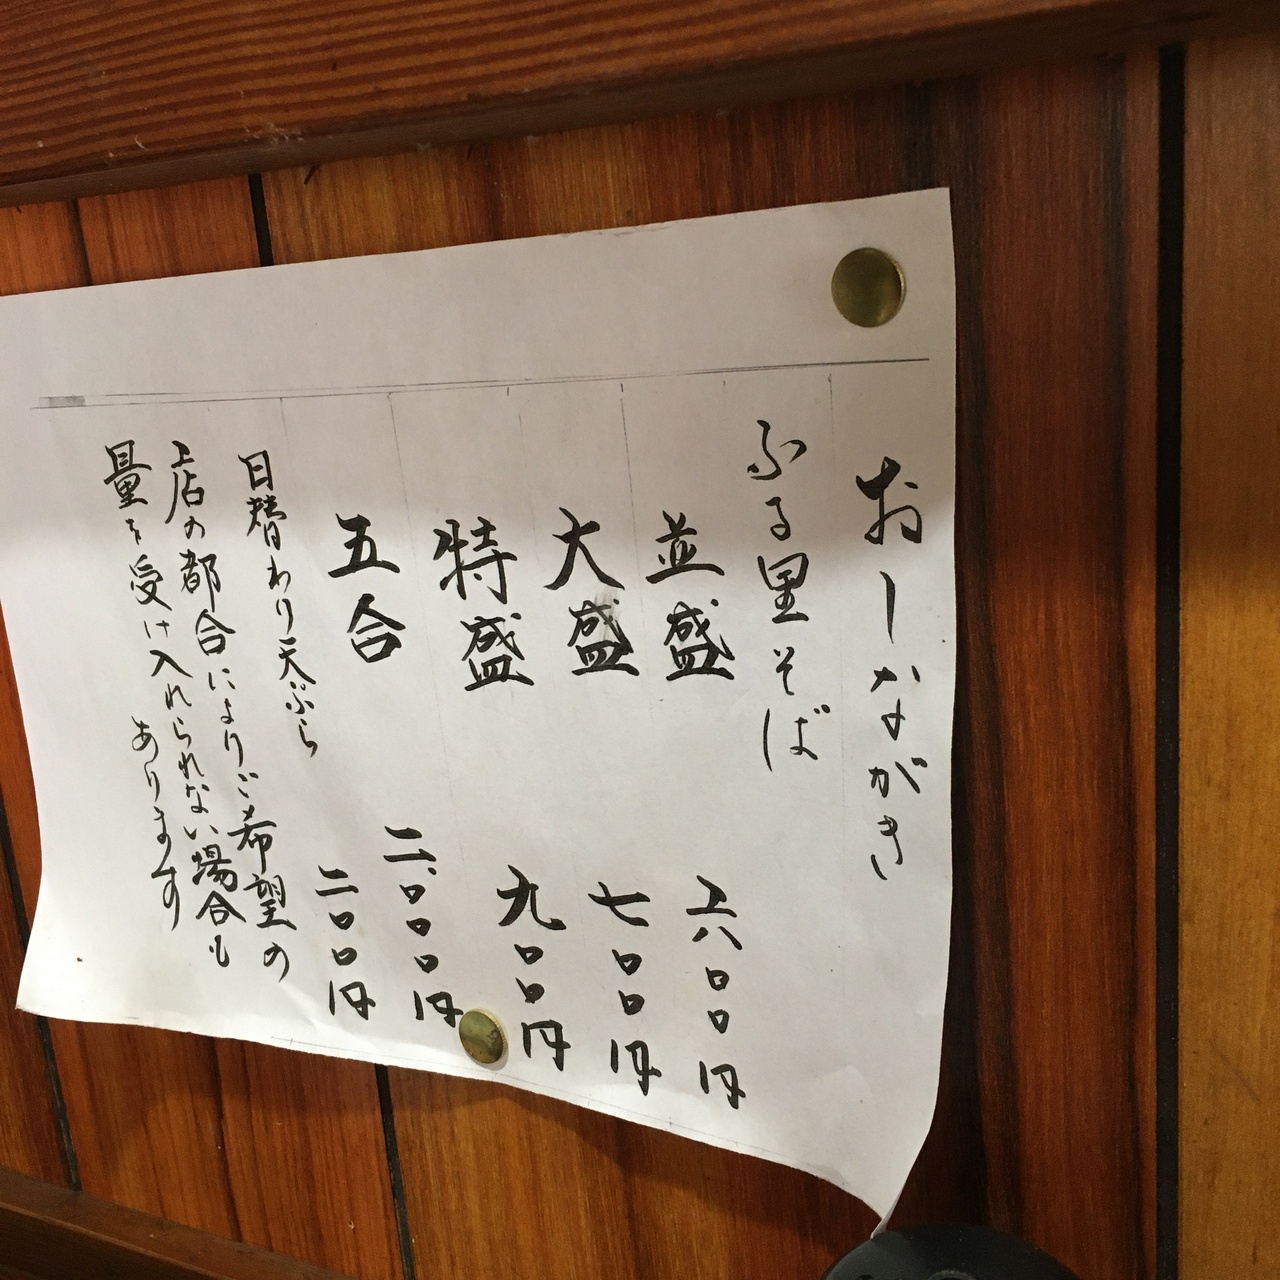 おしながき
ふる里そば
並盛 六〇〇円
大盛 七〇〇円
特盛 九〇〇円
五合 二、〇〇〇円
日替わり天ぷら 二〇〇円
店の都合によりご希望の
量を受け入れられない場合も
あります